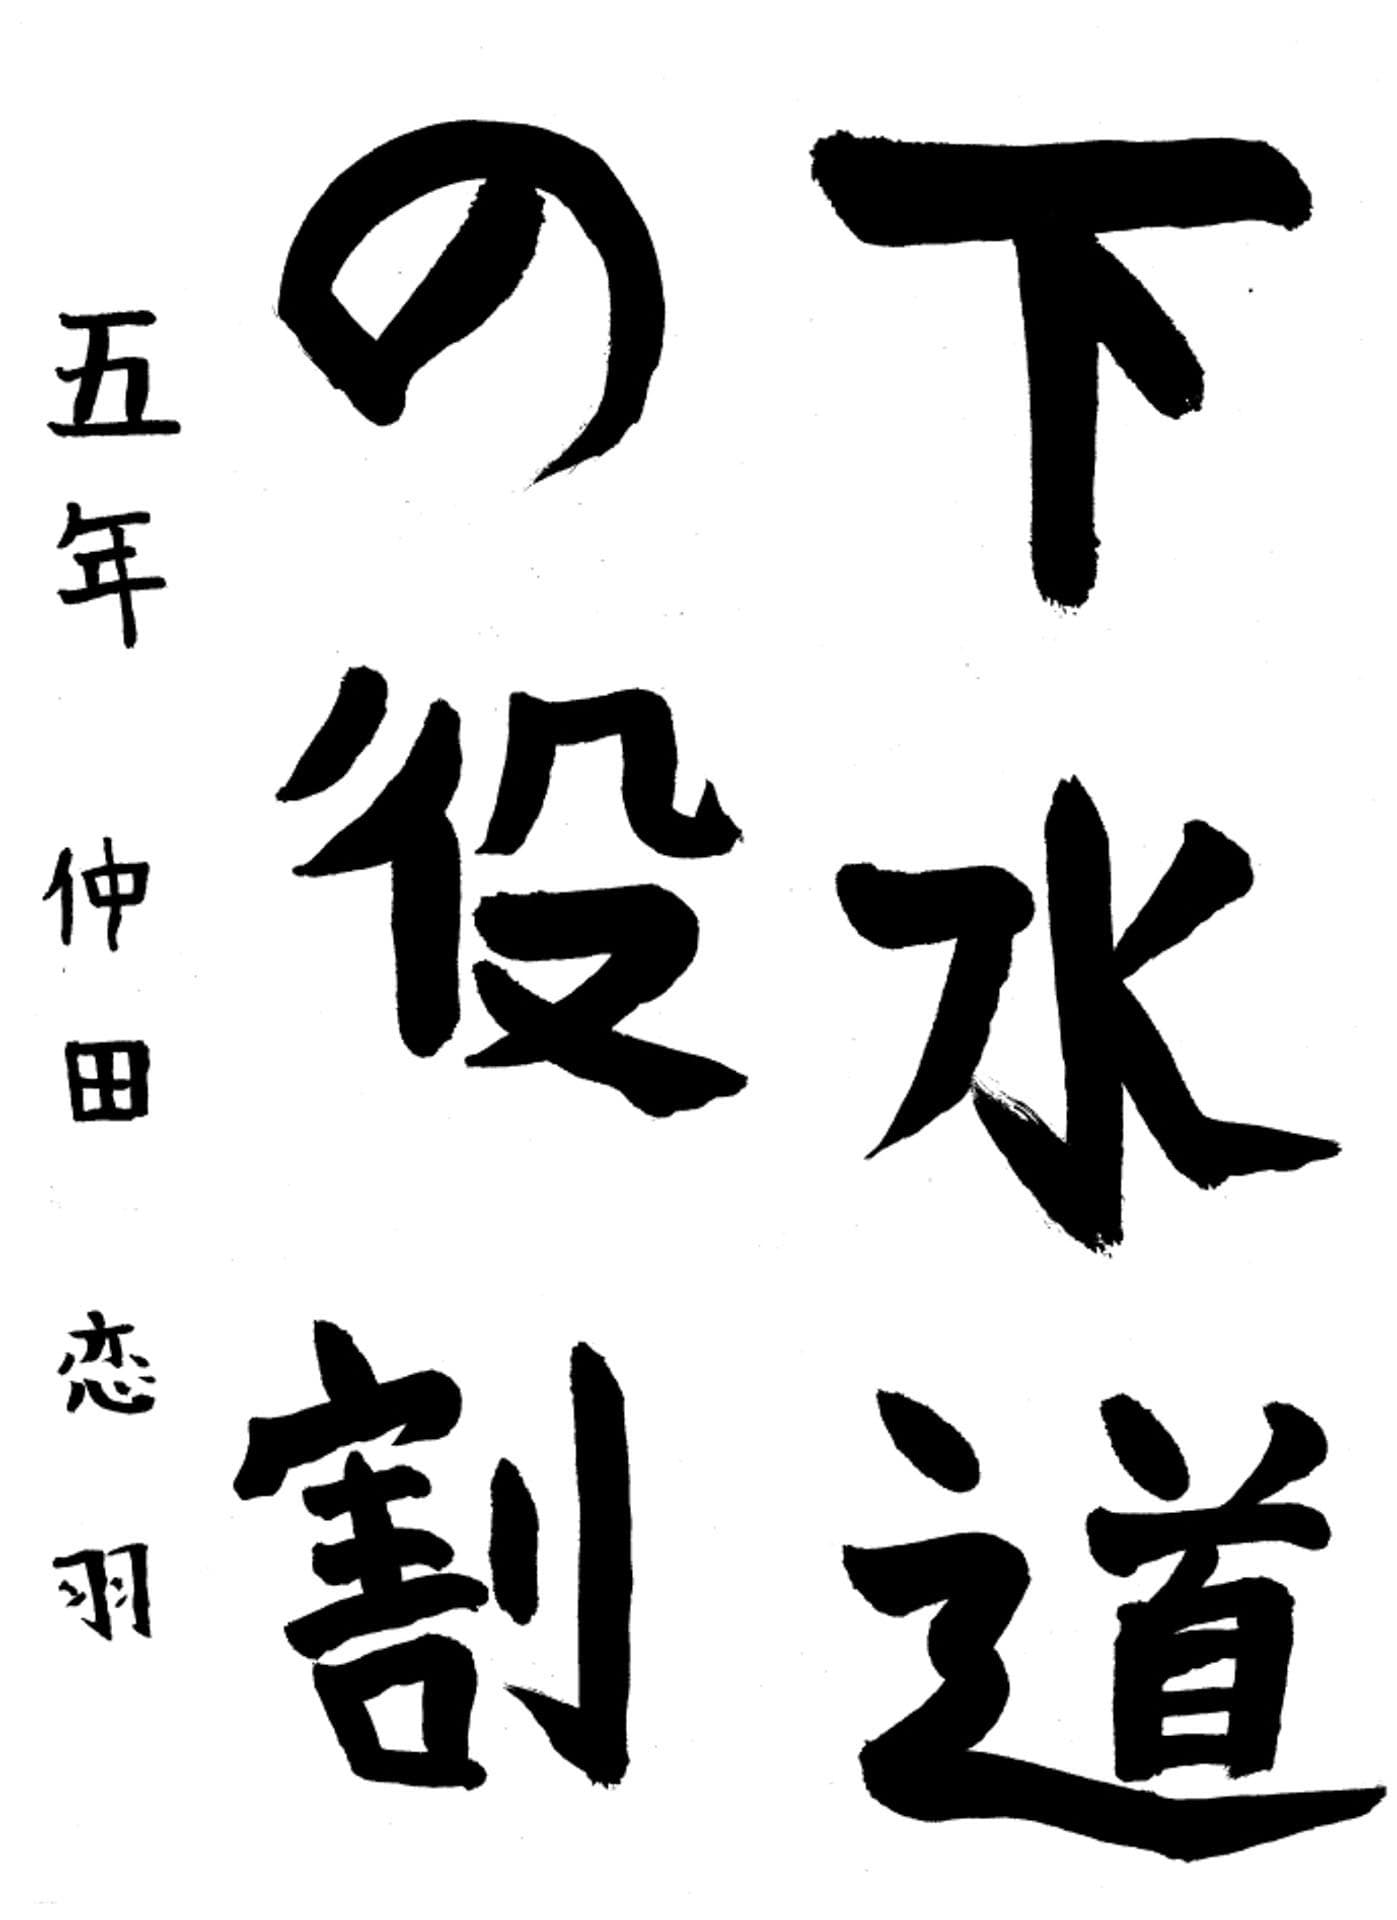 下水道
の役割
五年 仲田恋羽